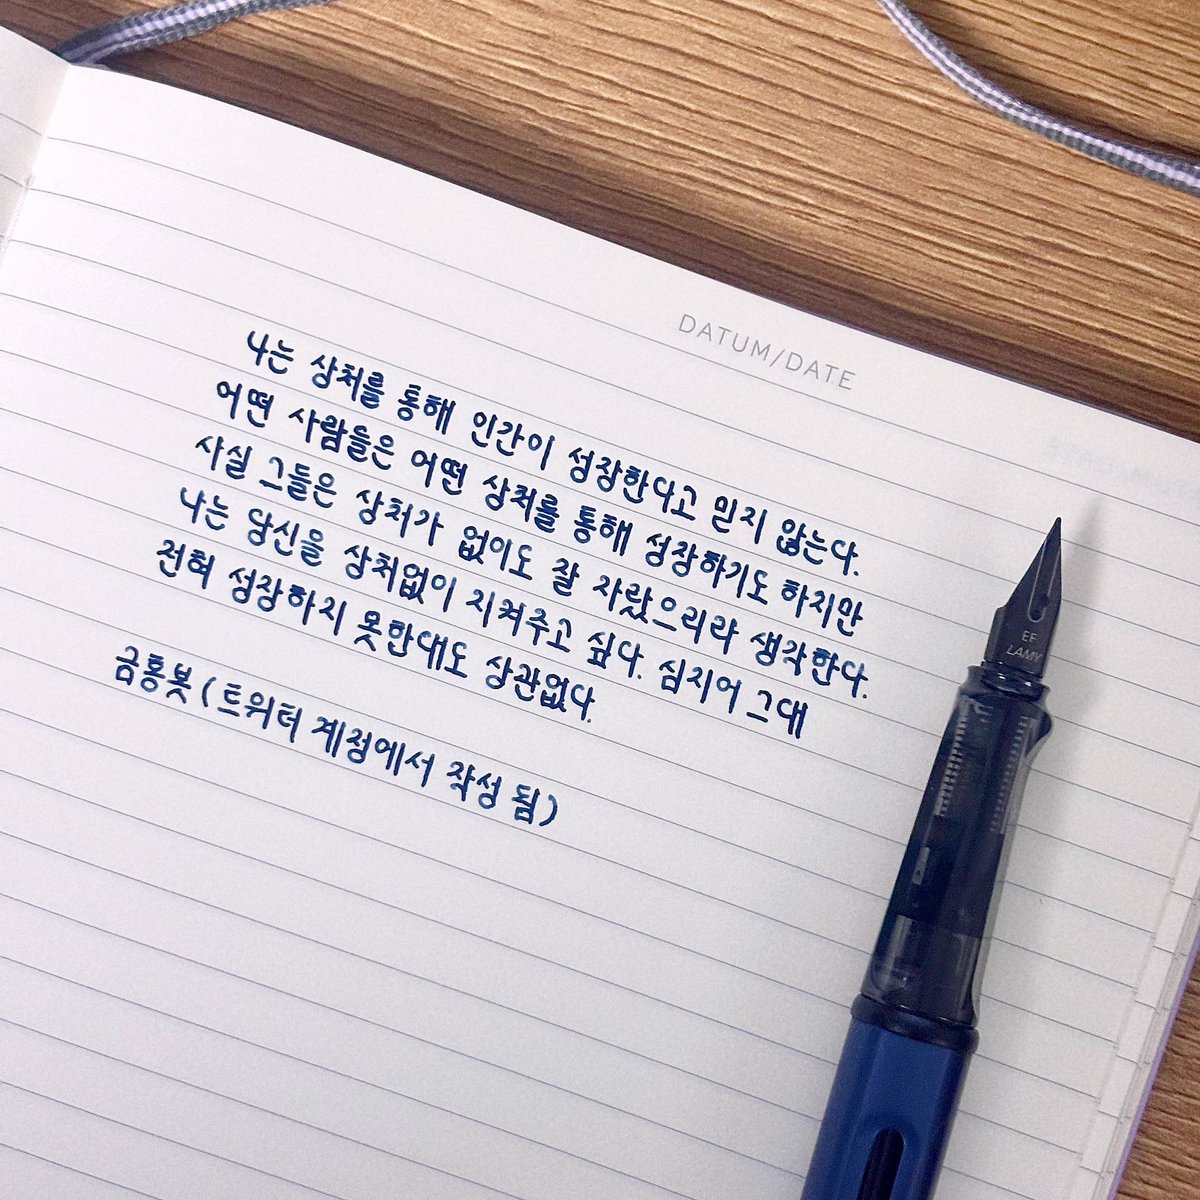 DATUM/DATE
나는 상처를 통해 인간이 성장한다고 믿지 않는다.
어떤 사람들은 어떤 상처를 통해 성장하기도 하지만
사실 그들은 상처가 없이도 잘 자랐으리라 생각한다.
나는 당신을 상처없이 지켜주고 싶다. 심지어 그대
전혀 성장하지 못한대도 상관없다.
금통봇 (트위터 계정에서 작성 됨)
EF
LAMY